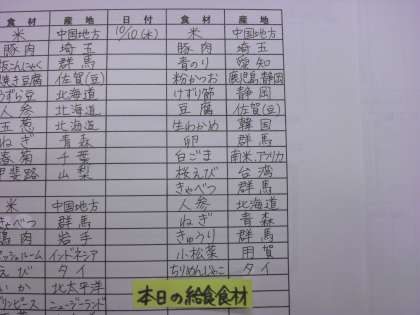 食材 産地 日付 食材 産地
米 中国地方 10/10(木) 米 中国地方
豚肉 埼玉 豚肉 埼玉
板こんにゃく 群馬 青のり 愛知
焼き豆腐 佐賀(豆) 粉かつお 鹿児島,静岡
うずら豆 北海道 けずり節 静岡
人参 北海道 豆腐 佐賀(豆)
玉葱 北海道 生わかめ 韓国
ねぎ 青森 卵 群馬
春菊 千葉 白ごま 南米,アフリカ
甲斐路 山梨 桜えび 台湾
きゃべつ 群馬
米 中国地方 人参 北海道
きゃべつ 群馬 ねぎ 青森
鶏肉 岩手 きゅうり 群馬
マッシュルーム インドネシア 小松菜 用賀
えび タイ ちりめんじゃこ タイ
いか 北太平洋
グリンピース ニュージーランド
本日の給食食材